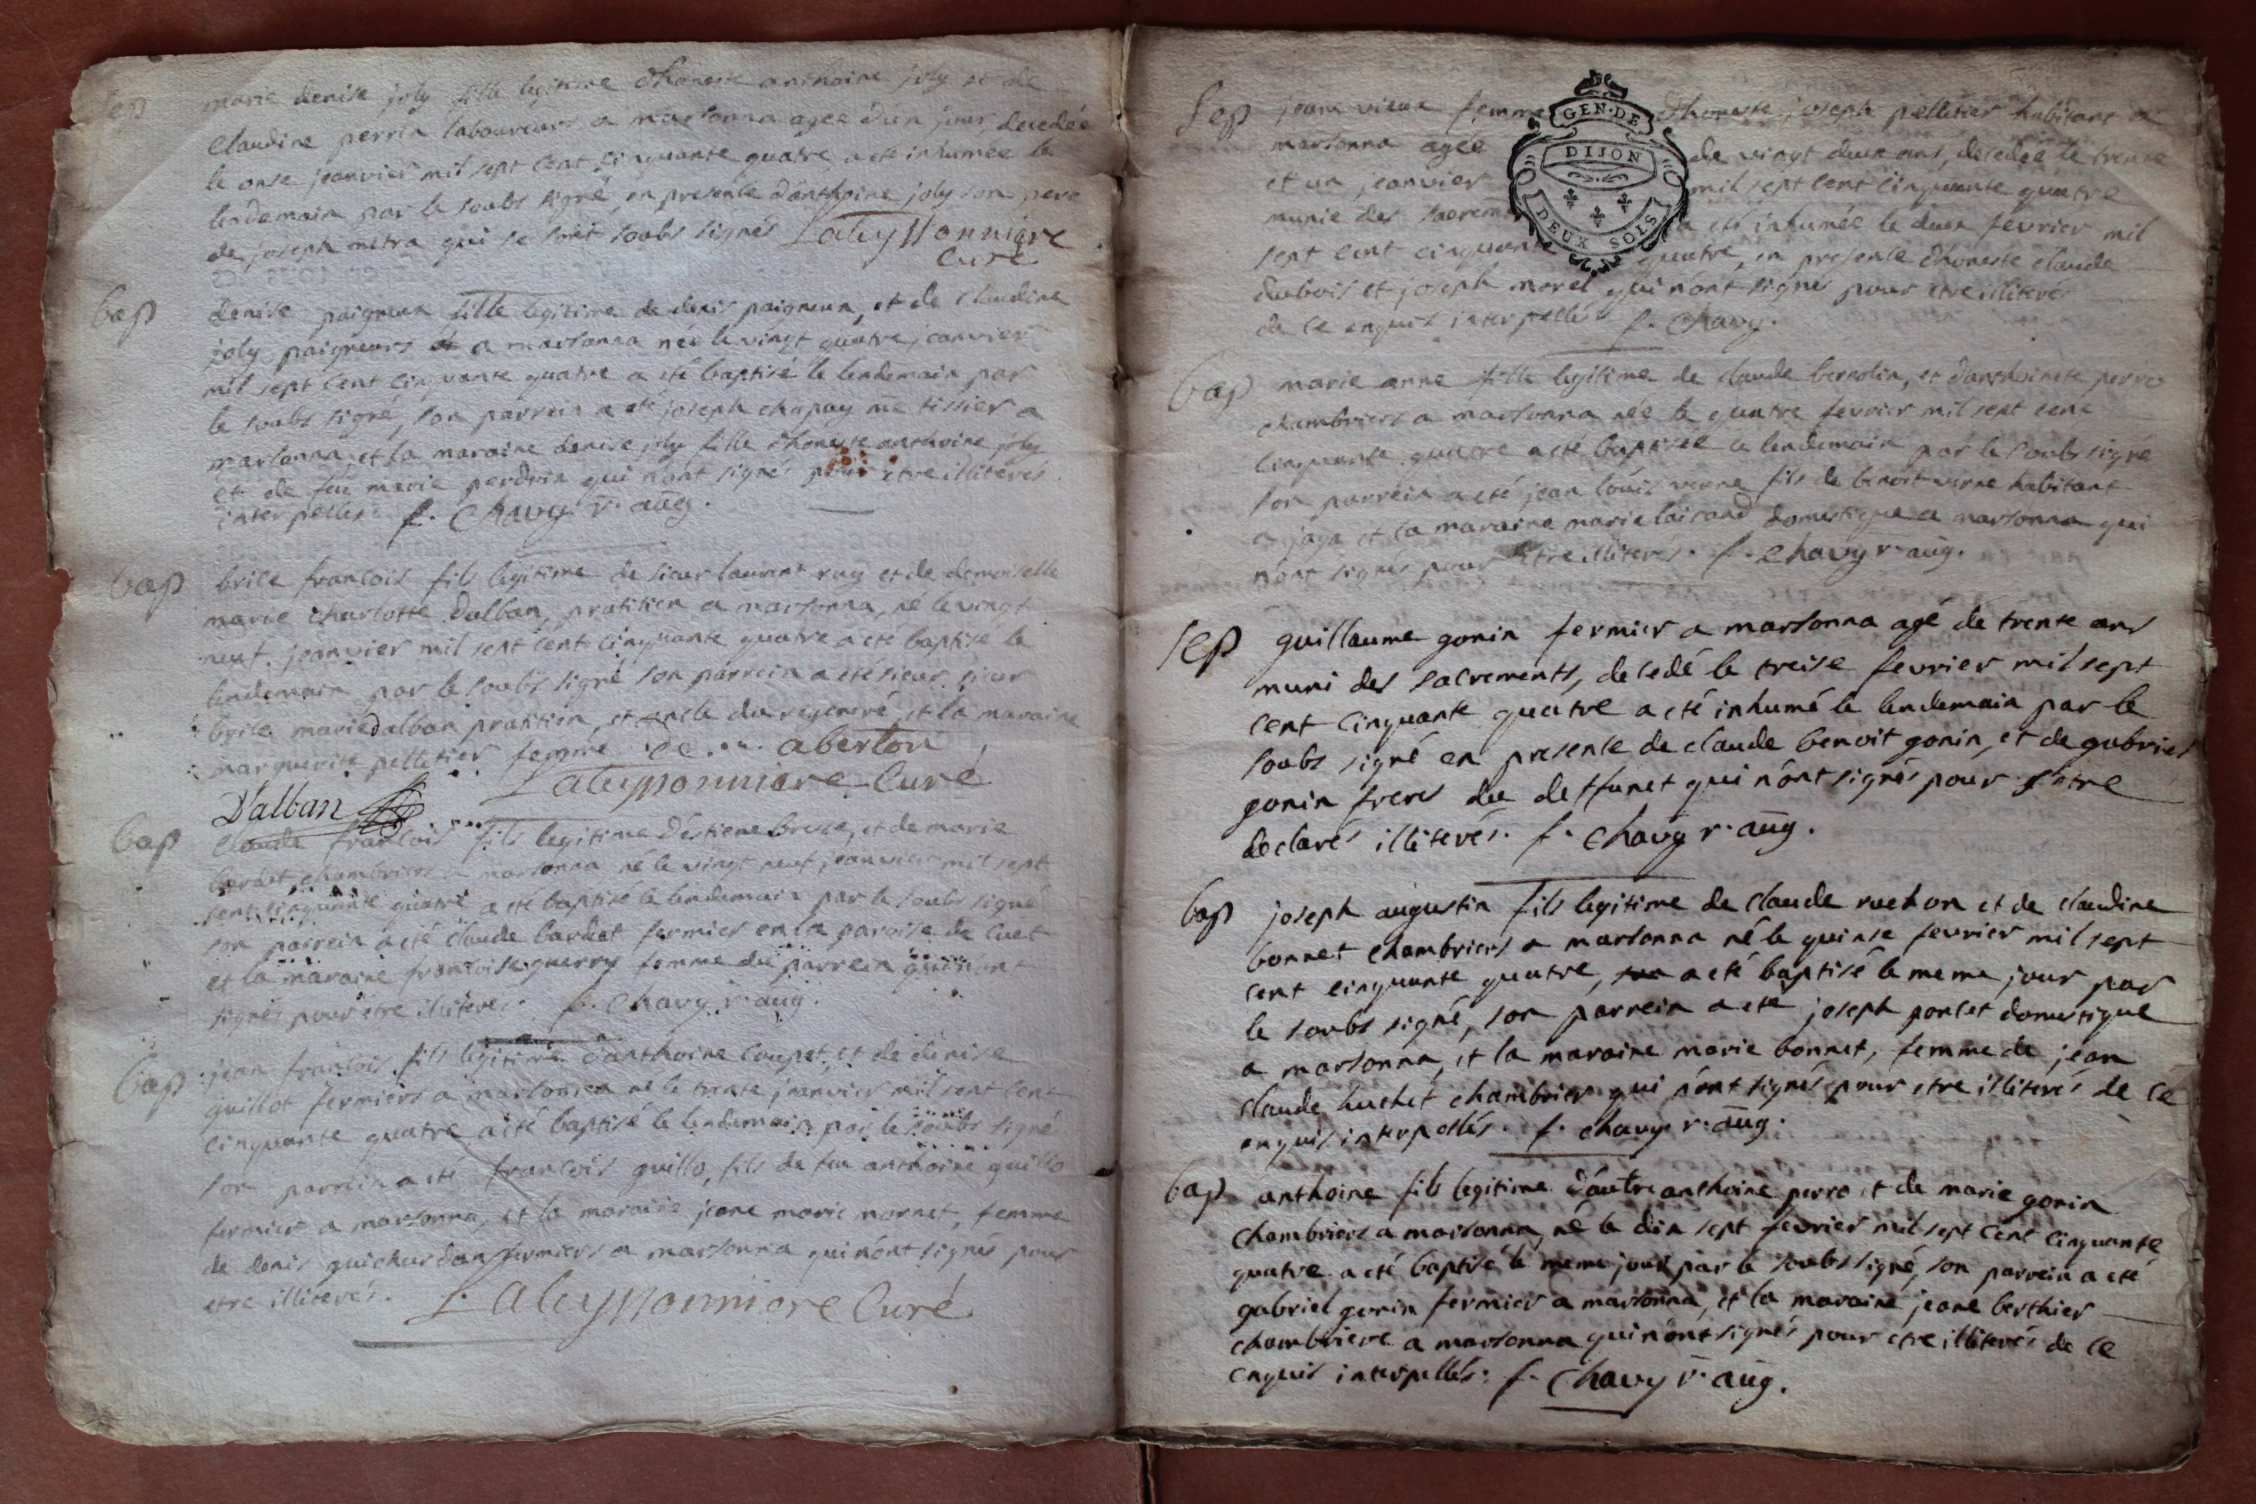 sep marie denise joly fille legitime d'honeste anthoine joly et de
claudine perrin laboureurs a marsonna agee d'un jour, decedée
le onse jeanvier mil sept cent cinquante quatre a eté inhumée le
lendemain par le soubs signé, en presence d'anthoine joly son pere
de joseph mitra qui se sont soubs signés Lateyssonniere
Curé
bap denise paigneux fille legitime de denis paigneux, et de claudine
joly paigneurs a marsonna née le vingt quatre jeanvier
mil sept cent cinquante quatre a eté baptisé le lendemain par
le soubs signé, son parrein a eté joseph chapuy me tissier a
marsonna, et la maraine denise joly fille d'honeste anthoine joly
et de feu marie perdrix qui n'ont signé pour etre illiterés
interpellés. f. Chavy r. aug.
bap brice francois fils legitime de sieur laurent ruy et de demoiselle
marie charlotte Dalban, pratitien a marsonna, né le vingt
neuf jeanvier mil sept cent cinquante quatre a eté baptisé le
lendemain par le soubs signé son parrein a eté sieur sieur
brice marie Dalban pratitien, et oncle du regeneré, et la maraine
marguerite pelletier femme de aberlon
D'alban Lateyssonniere Curé
bap claude francois fils legitime d'estiene broce, et de marie
bardet chambriers a marsonna né le vingt neuf jeanvier mil sept
cent cinquante quatre a eté baptisé le lendemain par le soubs signé
son parrein a eté claude bardet fermier en la paroisse de cuet
et la maraine francoise guerry femme du parrein qui n'ont
signés pour etre illiterés. f. Chavy r. aug.
bap jean francois fils legitime d'anthoine coupet, et de denise
guillot fermiers a marsonna né le trente jeanvier mil sept cent
cinquante quatre a eté baptisé le lendemain par le soubs signé
son parrein a eté francois guillo, fils de feu anthoine guillo
fermier a marsonna, et la maraine jeane marie mornet, femme
de denis guichardan fermiers a marsonna qui n'ont signés pour
etre illiterés. Lateyssonniere Curé
GEN. DE
DIJON
DEUX SOLS
Sep jeane vieux femme d'honeste joseph pelletier habitant a
marsonna agée de vingt deux ans, decedée le trente
et un jeanvier mil sept cent cinquante quatre
munie des sacrem a eté inhumée le deux fevrier mil
sept cent cinquante quatre, en presence d'honeste claude
dubois et joseph morel qui n'ont signés pour etre illiterés
de ce enquis interpellés f. Chavy.
bap marie anne fille legitime de claude bereolin, et d'anthoinete perre
chambriers a marsonna née le quatre fevrier mil sept cent
cinquante quatre a eté baptisée le lendemain par le soubs signé
son parrein a eté jean louis verne fils de benoit verne habitant
a jaya et la maraine marie loirand domestique a marsonna qui
n'ont signés pour etre illiterés. f. Chavy r. aug.
sep guillaume gonin fermier a marsonna agé de trente ans
muni des sacrements, decedé le treise fevrier mil sept
cent cinquante quatre a eté inhumé le lendemain par le
soubs signé en presence de claude benoit gonin, et de gabriel
gonin freres du deffunct qui n'ont signés pour s'etre
declarés illiterés. f. Chavy r. aug.
bap joseph augustin fils legitime de claude ruchon et de claudine
bonnet chambriers a marsonna né le quinse fevrier mil sept
cent cinquante quatre, a eté baptisé le meme jour par
le soubs signé, son parrein a eté joseph poncet domestique
a marsonna, et la maraine marie bonnet, femme de jean
claude huchet chambrier qui n'ont signés pour etre illiterés de ce
enquis interpellés. f. chavy r. aug.
bap anthoine fils legitime d'autre anthoine perre et de marie gonin
chambriers a marsonna, né le dix sept fevrier mil sept cent cinquante
quatre a eté baptisé le meme jour par le soubs signé, son parrein a eté
gabriel gonin fermier a marsonna, et la maraine jeane berthier
chambriere a marsonna qui n'ont signés pour etre illiterés de ce
enquis interpellés. f. Chavy r. aug.